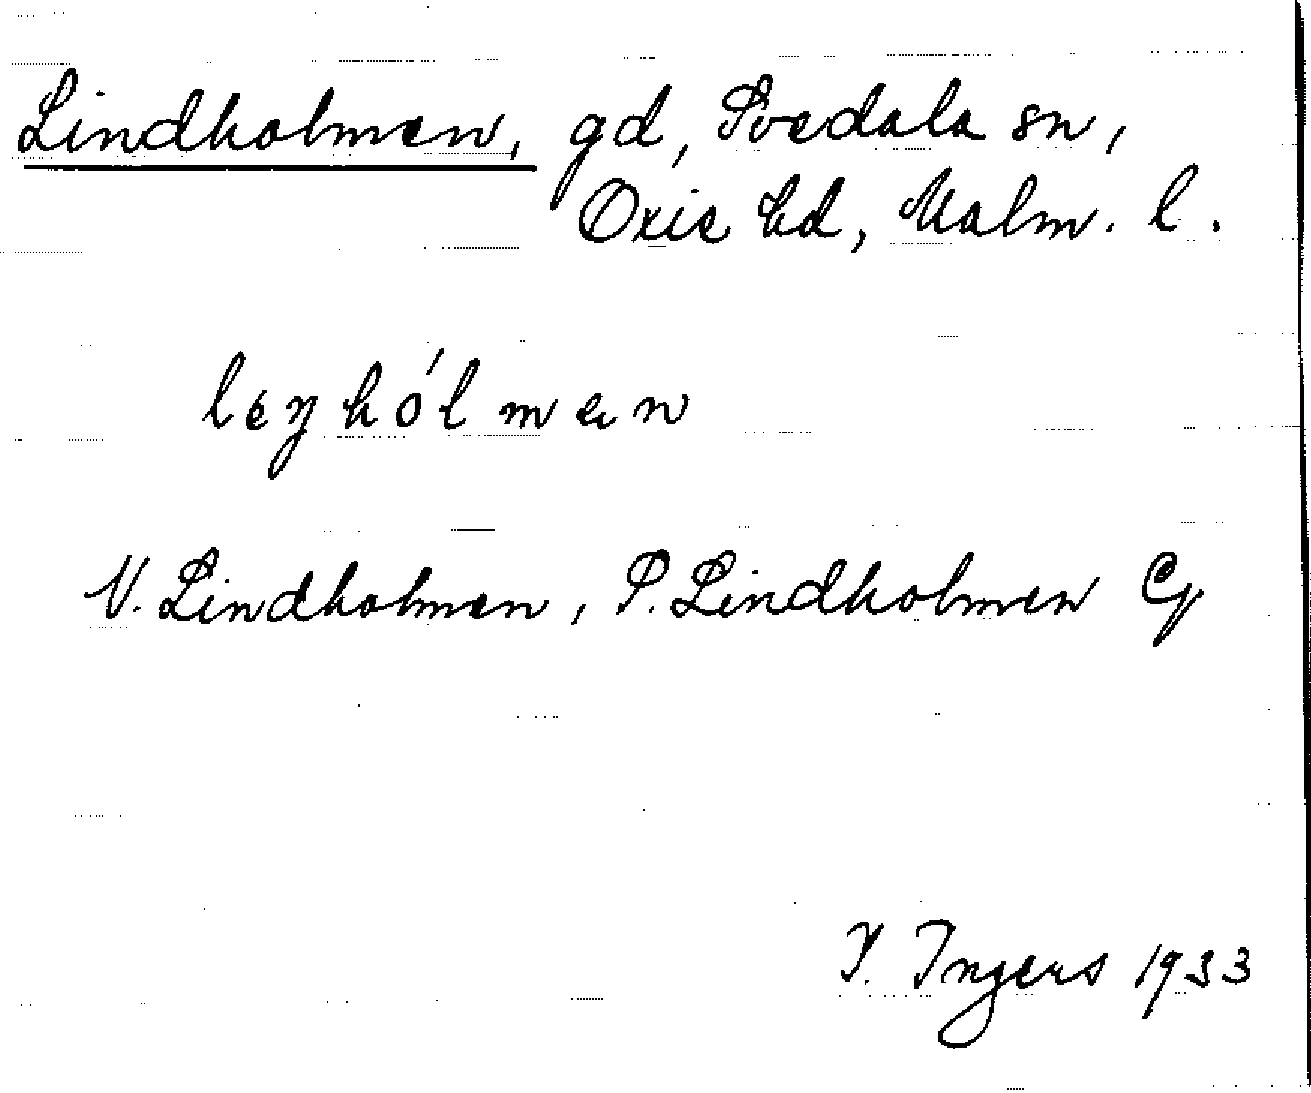 Lindholmen, gd, Svedala sn,
Oxie hd, Malm. l.
leŋhólmen
N. Lindholmen, S. Lindholmen
I. Ingers 1933